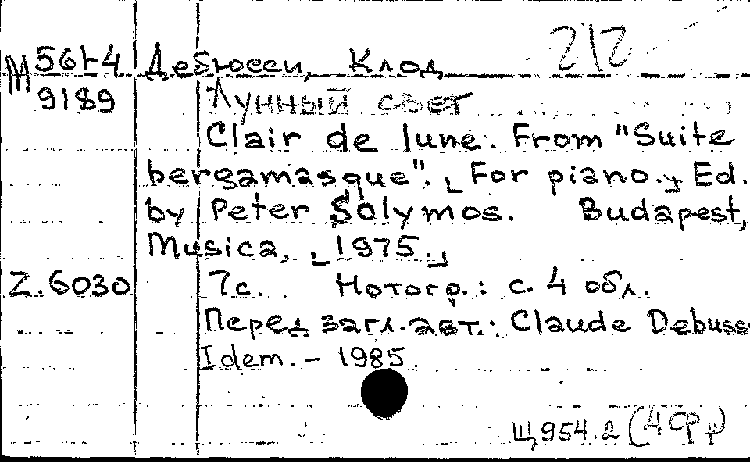 М 561-4 Дебюсси, Клод 212
9189 Лунный свет
Clair de lune. From "Suite
bergamasque". [For piano.] Ed.
by Peter Solymos. Budapest,
Musica, [1975]
Z.6030 7с. Нотогр.: с. 4 обл.
Перед загл. авт.: Claude Debuss
Idem. – 1985
Щ954.2 (4Фр)